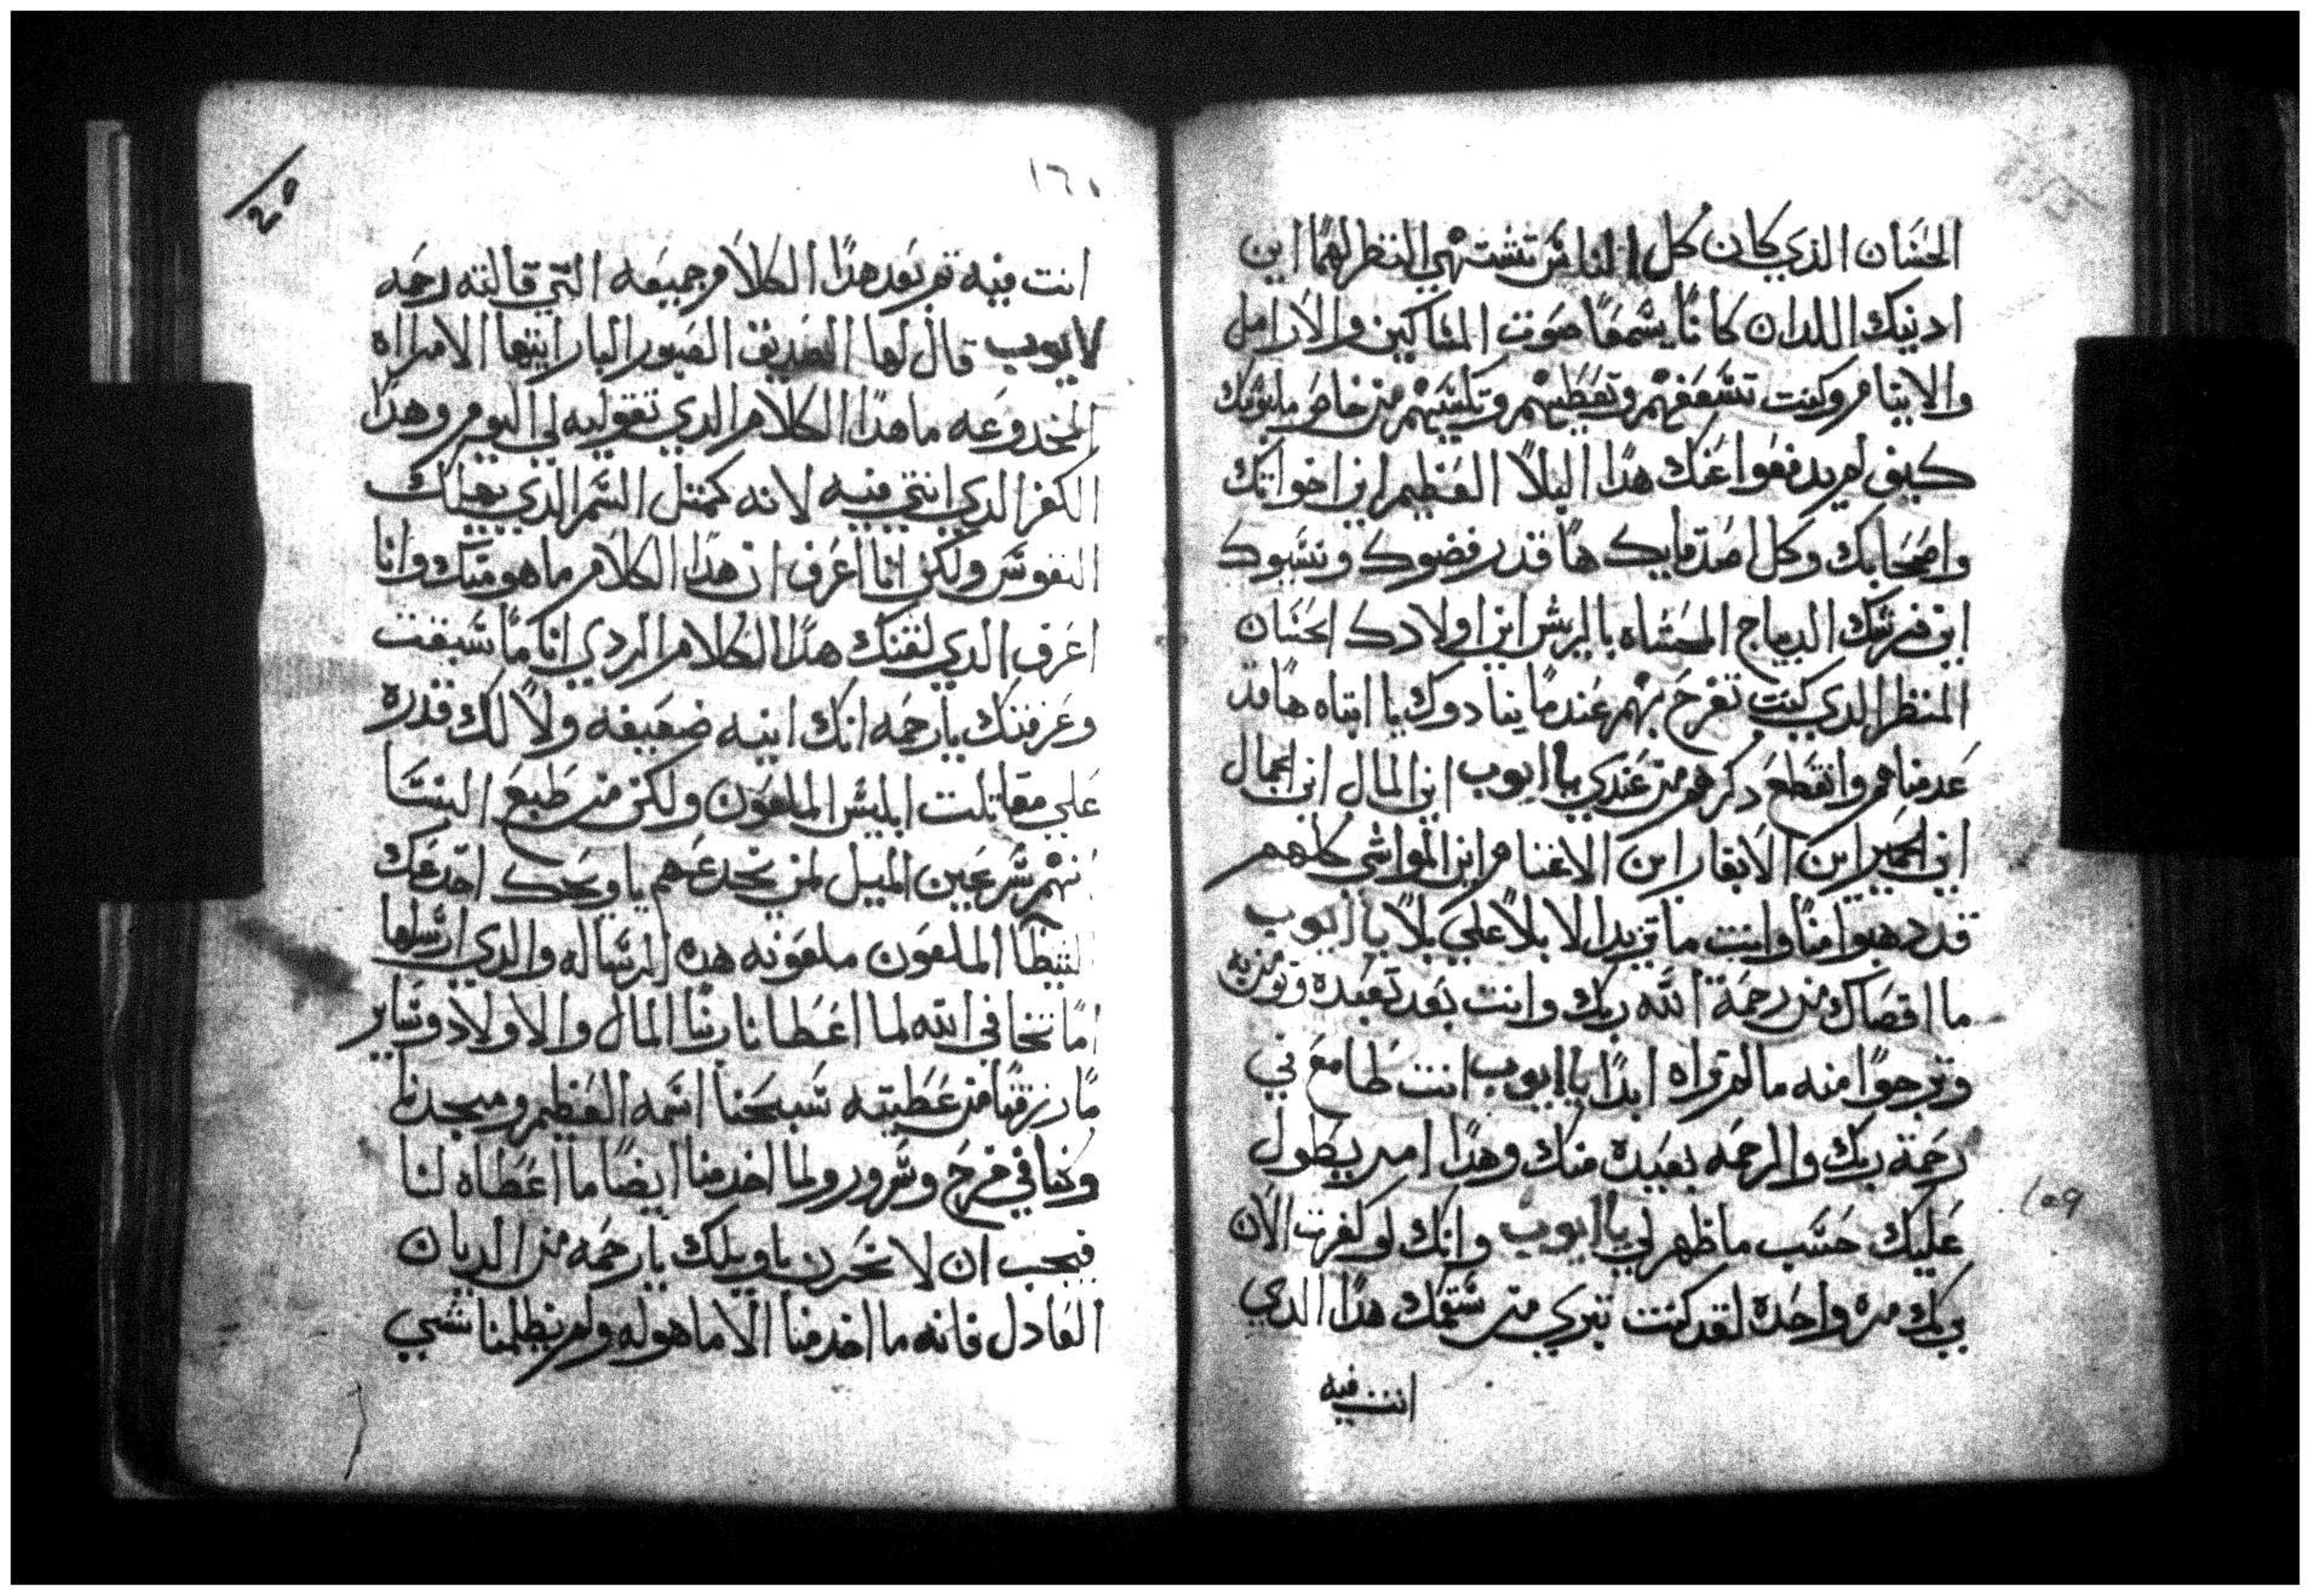 الحسان الذي كان كل الناس تشتهي النظر لهما اين
ادنيك اللدان كانا يسمعا صوت المساكين والارامل
والايتام وكنت تسعفهم وتعطيهم وتكسيهم من خاص ملبوسك
كيف لم يدفعوا عنك هدا البلا العظيم اين اخواتك
واصحابك وكل اصدقايك ها قد رفضوك ونسيوك
اين فرشك الديباج المحشاه بالريش اين اولادك الحسان
المنظر الدي كنت تفرح بهم عندما ينادوك يا ابتاه ها قد
عدمناهم وانقطع دكرهم من عندي يا ايوب اين المال اين الجمال
اين الحمير اين الابقار اين الاغنام اين المواشي كلهم
قد دهبوا منا وانت ما تزيد الا بلا علي بلا يا ايوب
ما اقصاك من رحمة الله ربك وانت بعد تعبده وتومن به
وترجوا منه ما لم تراه ابدا يا ايوب انت طامع في
رحمة ربك والرحمه بعيده منك وهدا امر يطول
عليك حسب ما ظهر لي يا ايوب وانك لو كفرت الان
بربك مره واحده لقد كنت تبري من سقمك هدا الدي
انت فيه
١٥٩
١٦٠
انت فيه تم بعد هدا الكلام جميعه التي قالته رحمه
لايوب قال لها الصديق الصبور البار ايتها الامراه
المخدوعه ما هدا الكلام الدي تقوليه لي اليوم وهدا
الكفر الدي انتي فيه لانه كمتل السم الدي يهلك
النفوس ولكن انا اعرف ان هدا الكلام ما هو منك وانا
اعرف الدي لقنك هدا الكلام الردي انا كما سبقت
وعرفتك يا رحمه انك ابنه ضعيفه ولا لك قدره
علي مقاتلت ابليس الملعون ولكن من طبع النسا
انهم سرعين الميل لمن يخدعهم يا ويحك اخدعك
الشيطا الملعون ملعونه هده الرساله والدي ارسلها
اما تخافي الله لما اعطانا ربنا المال والاولاد وساير
ما رزقنا من عطيته سبحنا اسمه العظيم ومجدنا
وكنا في فرح وسرور ولما اخد منا ايضا ما اعطاه لنا
فيجب ان لا نحزن يا ويلك يا رحمه من الديان
العادل فانه ما اخد منا الا ما هو له ولم يظلمنا شي